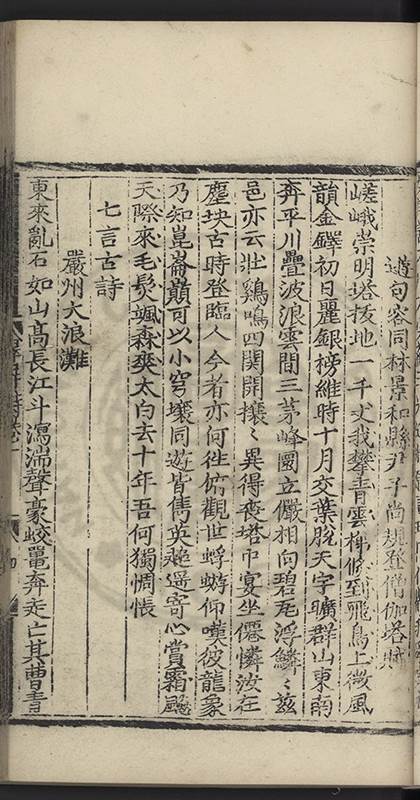 過句容同林景和縣尹子尚規登僧伽塔賦
嵯峨崇明塔拔地一千丈我攀青雲梯倏到飛鳥上微風
韻金鐸初日麗銀榜維時十月交葉脫天宇曠群山東南
奔平川疊波浪雲間三茅峰圜立儼相向碧瓦浮鱗〻茲
邑亦云壯鷄鳴四関開攘〻異得丧塔中宴坐僊憐汝在
塵坱古時登臨人今者亦何徃俯觀世蜉蝣仰嘆彼龍象
乃知崑崙巔可以小穹壤同遊皆雋英超遥寄心賞霜飈
天際来毛髮颯森爽太白去十年吾何獨惆悵
七言古詩
嚴州大浪灘
東來亂石如山髙長江斗瀉湍聲豪蛟鼉奔走亡其曹青